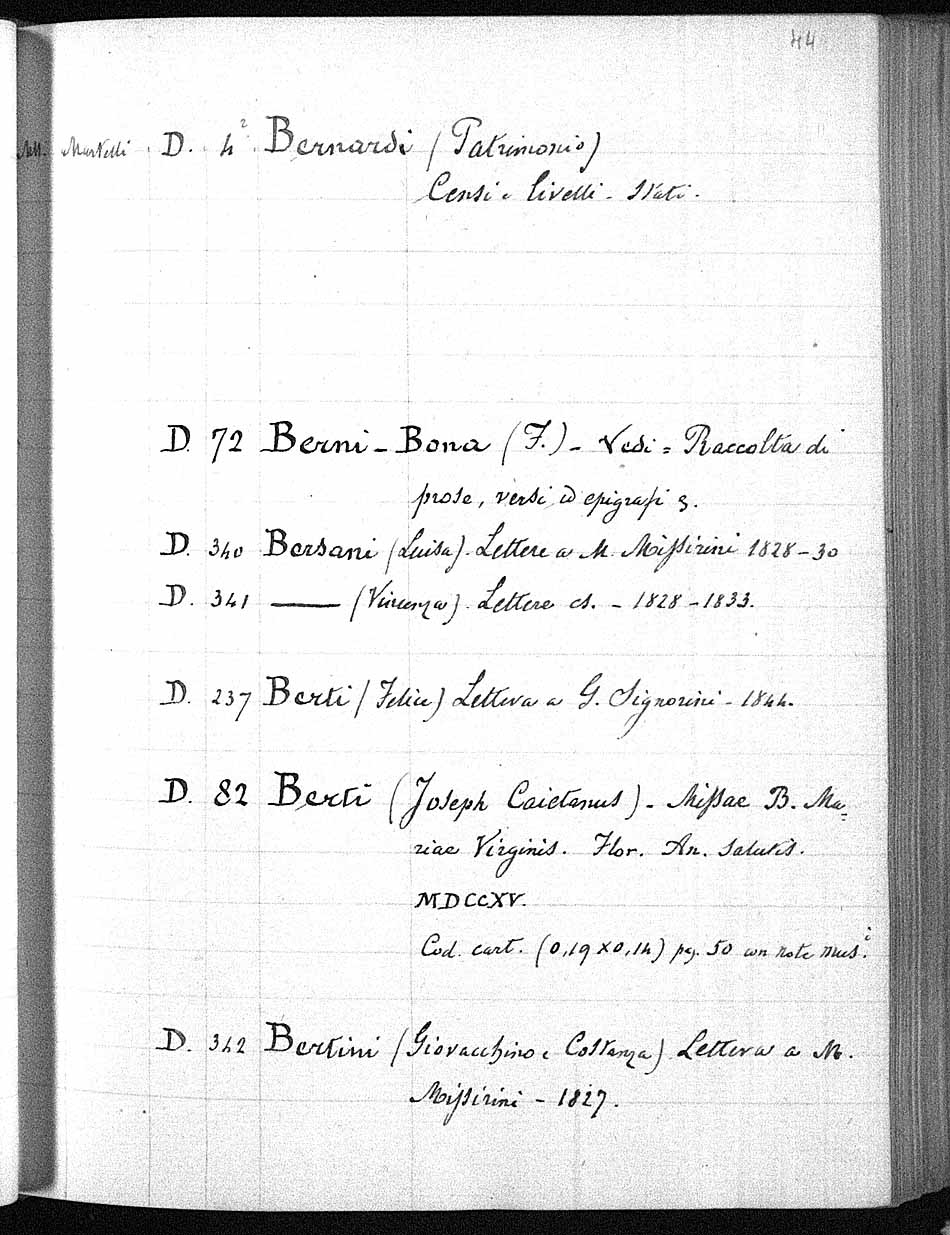 44
Martelli D. 4² Bernardi (Patrimonio)
Censi e livelli - Stati.
D. 72 Berni - Bona (F.) - Vedi = Raccolta di
prose, versi ed epigrafi
D. 340 Bersani (Luisa) - Lettere a M. Missirini 1828-30
D. 341 —— (Vincenza) - Lettere cs. - 1828-1833.
D. 237 Berti (Felice) Lettera a G. Signorini - 1844.
D. 82 Berti (Joseph Caietanus) - Missae B. Ma=
riae Virginis. Flor. An. Salutis.
MDCCXV.
Cod. cart. (0,19 x 0,14) pag. 50 con note mus.ⁱ
D. 342 Bertini (Giovacchino e Costanza) Lettera a M.
Missirini - 1827.